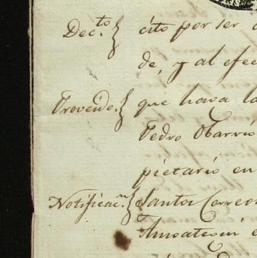 Dec.to cito por ser
de, y al efec
Proveido. que haga la
Pedro Obarrio
pietario en
Notificac.n Santos Correo